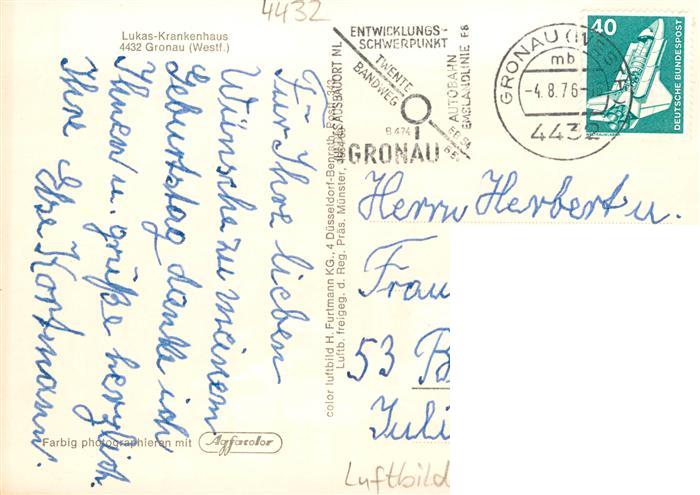 4432
Lukas-Krankenhaus
4432 Gronau (Westf.)
Für Ihre lieben
Wünsche zu meinem
Geburtstag danke ich
Ihnen u. grüße herzlich.
Ihre Else Kortmann.
Farbig photographieren mit Agfacolor
color luftbild H. Furtmann KG., 4 Düsseldorf-Benrath,
Luftb. freigeg. d. Reg. Präs. Münster,
ENTWICKLUNGS-
SCHWERPUNKT
AUSBAUORT NL
TWENTE
BANDWEG
AUTOBAHN
EMSLANDLINIE E8
B 474
GRONAU
GRONAU
mb
-4.8.76-
4432
40
DEUTSCHE BUNDESPOST
Herrn Herbert u.
Frau
53 B
Juli
Luftbild